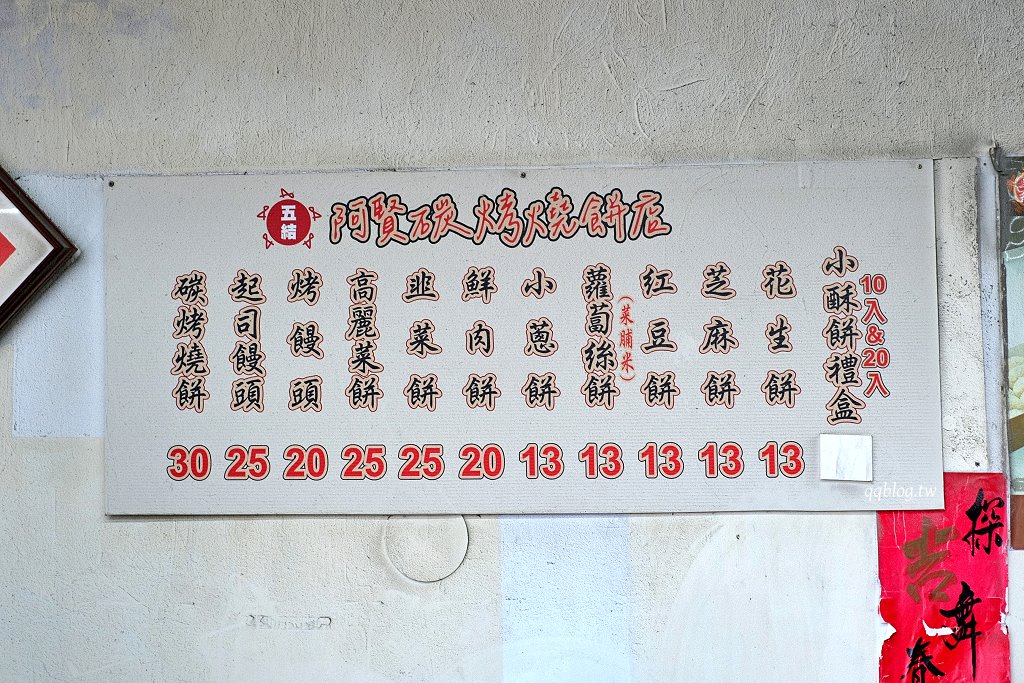 五結
阿賢碳烤燒餅店
小酥餅禮盒
10入&20入
花生餅
13
芝麻餅
13
紅豆餅
13
蘿蔔絲餅
(菜脯米)
13
小蔥餅
13
鮮肉餅
20
韭菜餅
25
高麗菜餅
25
烤饅頭
20
起司饅頭
25
碳烤燒餅
30
qqblog.tw
吉
探
舞春